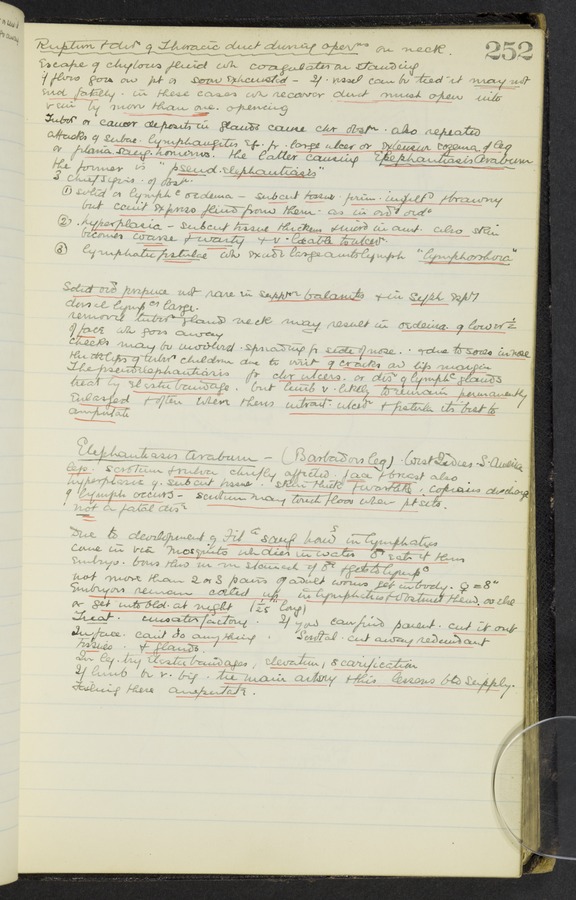 252
Rupture & divn of Thoracic duct during opern on neck.
Escape of chylous fluid wh coagulates on standing
If flow goes on pt is soon exhausted - If vessel can be tied it may not
end fatally. in these cases wh recover duct must open into
vein by more than one opening
Tuber or cancer deposits in glands cause chr obstn. also repeated
attacks of subac. lymphangitis eg. fr. large ulcer or extensive eczema of leg
or filaria sang. hominis. the latter causing Elephantiasis Arabum
the former is "pseud. elephantiasis"
3 chief signs of obstn
① solid or lymphc oedema - subcut tissue firm & brawny
but can't express fluid from them as in ord oed
② hyperplasia - subcut tissue thickens also skin
becomes coarse & warty & v. liable to ulcer
③ lymphatic fistulae wh exude large amt lymph "lymphorrhoea"
Solid oed prepuce not rare in balanitis & in syph
dorsal lymphcs large.
removal tuber gland neck may result in oedema of lower ½
of face wh goes away
cheeks may be involved spreading fr side of nose. & due to sores in nose
thick lips of tuber children due to irrit of cracks on lip margin
The pseudelephantiasis fr chr ulcers or disn of lymphc glands
treat by elastic bandage. but limb v. likely to remain permanently
enlarged & often when theres ulcern & its best to
amputate
Elephantiasis Arabum - (Barbadoes leg) West Indies S. America
legs. scrotum & vulva chiefly affected. face & breast also
hyperplasia of subcut tissue. skin thick & warty. copious discharge
of lymph occurs - scrotum may touch floor when pt sits.
not a fatal dise
Due to development of Fila sang homs in lymphatics
come in via mosquito wh dies in water
embryo bores thro in m stomach of & gets to lymphc
not more than 2 or 3 pairs of adult worms get in body. ♀ = 3"
Embryos remain coiled up in lymphatics & obstruct them, or else
or get into bld at night long)
Treat. unsatisfactory. If you can find parent. cut it out
In face cant do anything. Scrotal. cut away redundant
tissues & glands.
In leg. try elastic bandages, elevation, scarification
If limb be v. big. tie main artery & this lessens bld supply.
Failing these amputate.